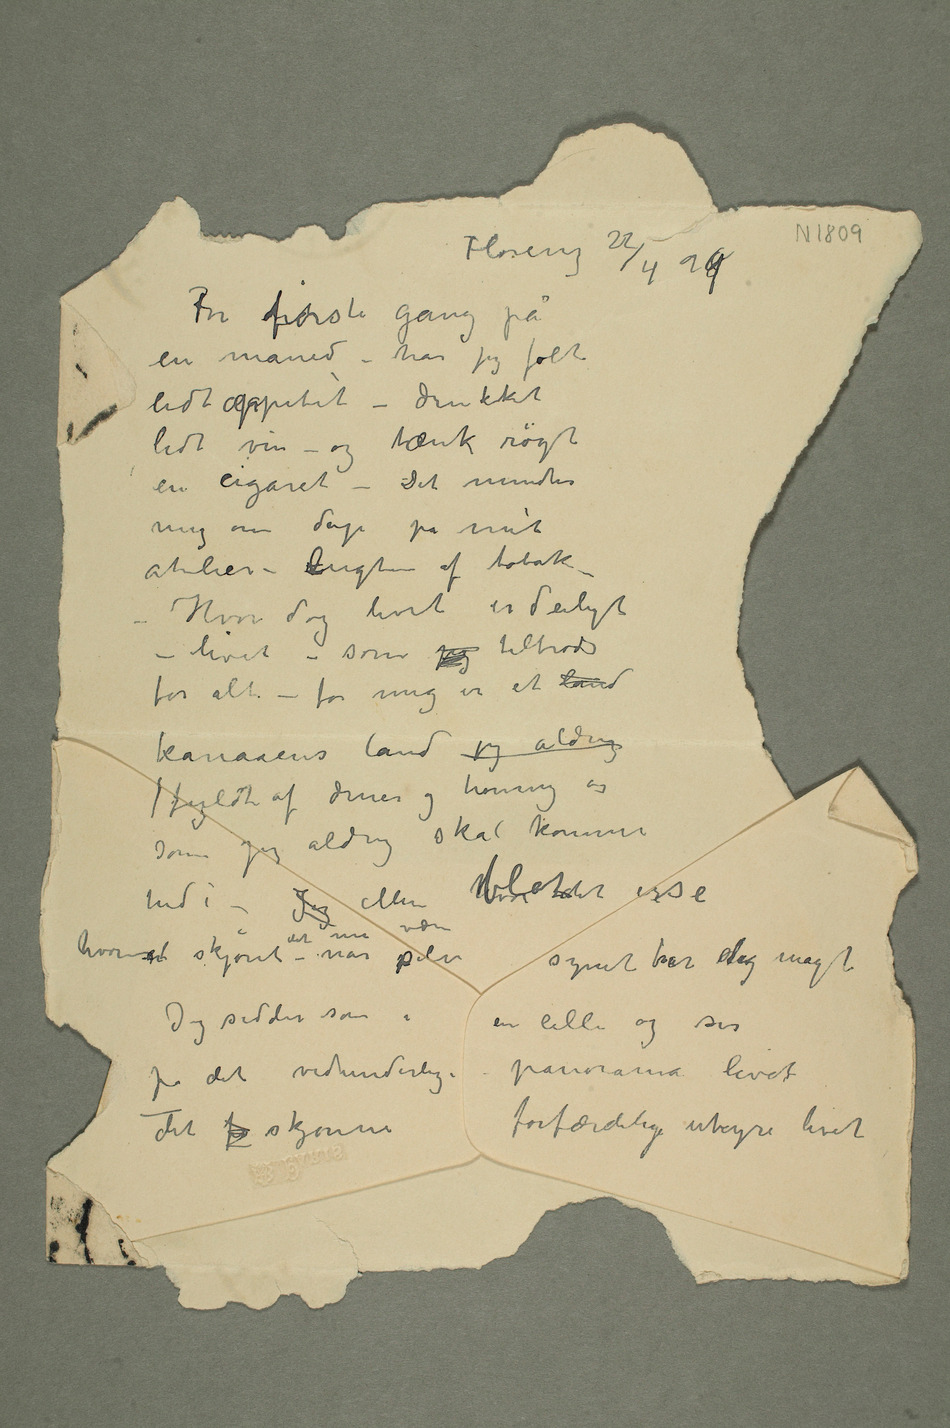 N1809
Florenz 22/4 99
For første gang på
en måned – har jeg følt
lidt appetit – drukket
lidt vin – og tænk røgt
en cigaret – Det minder
mig om dage på mit
atelier – lugten af tobak –
– Hvor dog livet er deiligt
– livet – som jeg tiltrods
for alt – for mig er et land
kanaaens land jeg aldrig
fyldt af druer og honning og
som jeg aldrig skal komme
ind i – Jeg eller blot det isse
hvor skjønt – når selv synet har dog magt
det nu være
Jeg sidder som i en celle og ser
på det vidunderlige panorama livet
det skjønne forfærdelige uhyre livet